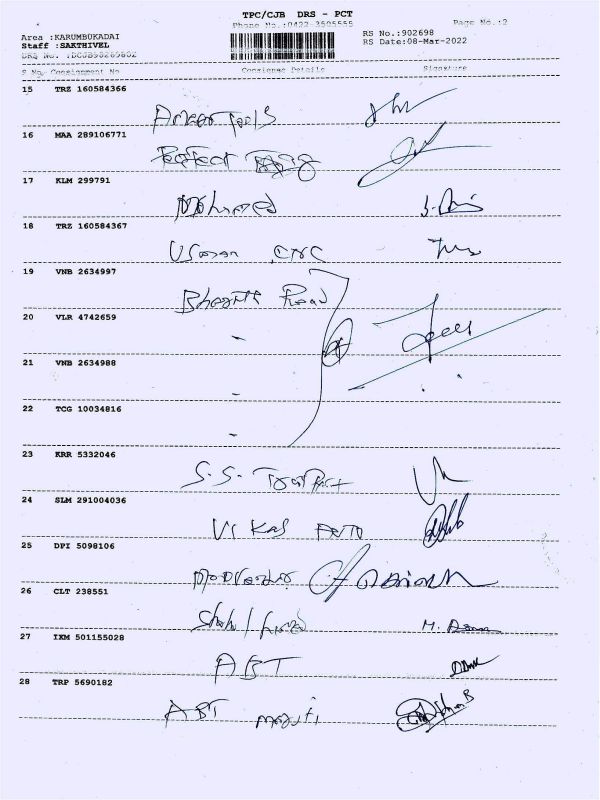 TPC/CJB DRS - PCT
Phone No.:0422-3505555 Page No.:2
Area :KARUMBUKADAI RS No.:902698
Staff :SAKTHIVEL RS Date:08-Mar-2022
DRS No. :DCJB98269802
S No. Consignment No Consignee Details Signature
15 TRZ 160584366
Tools
16 MAA 289106771
Perfect
17 KLM 299791
Mohamed
18 TRZ 160584367
Usman CNC
19 VNB 2634997
Bharath Road
20 VLR 4742659
21 VNB 2634988
22 TCG 10034816
23 KRR 5332046
S.S.
24 SLM 291004036
Vikas Auto
25 DPI 5098106
26 CLT 238551
27 IXM 501155028
ABT
28 TRP 5690182
ABT Maruti